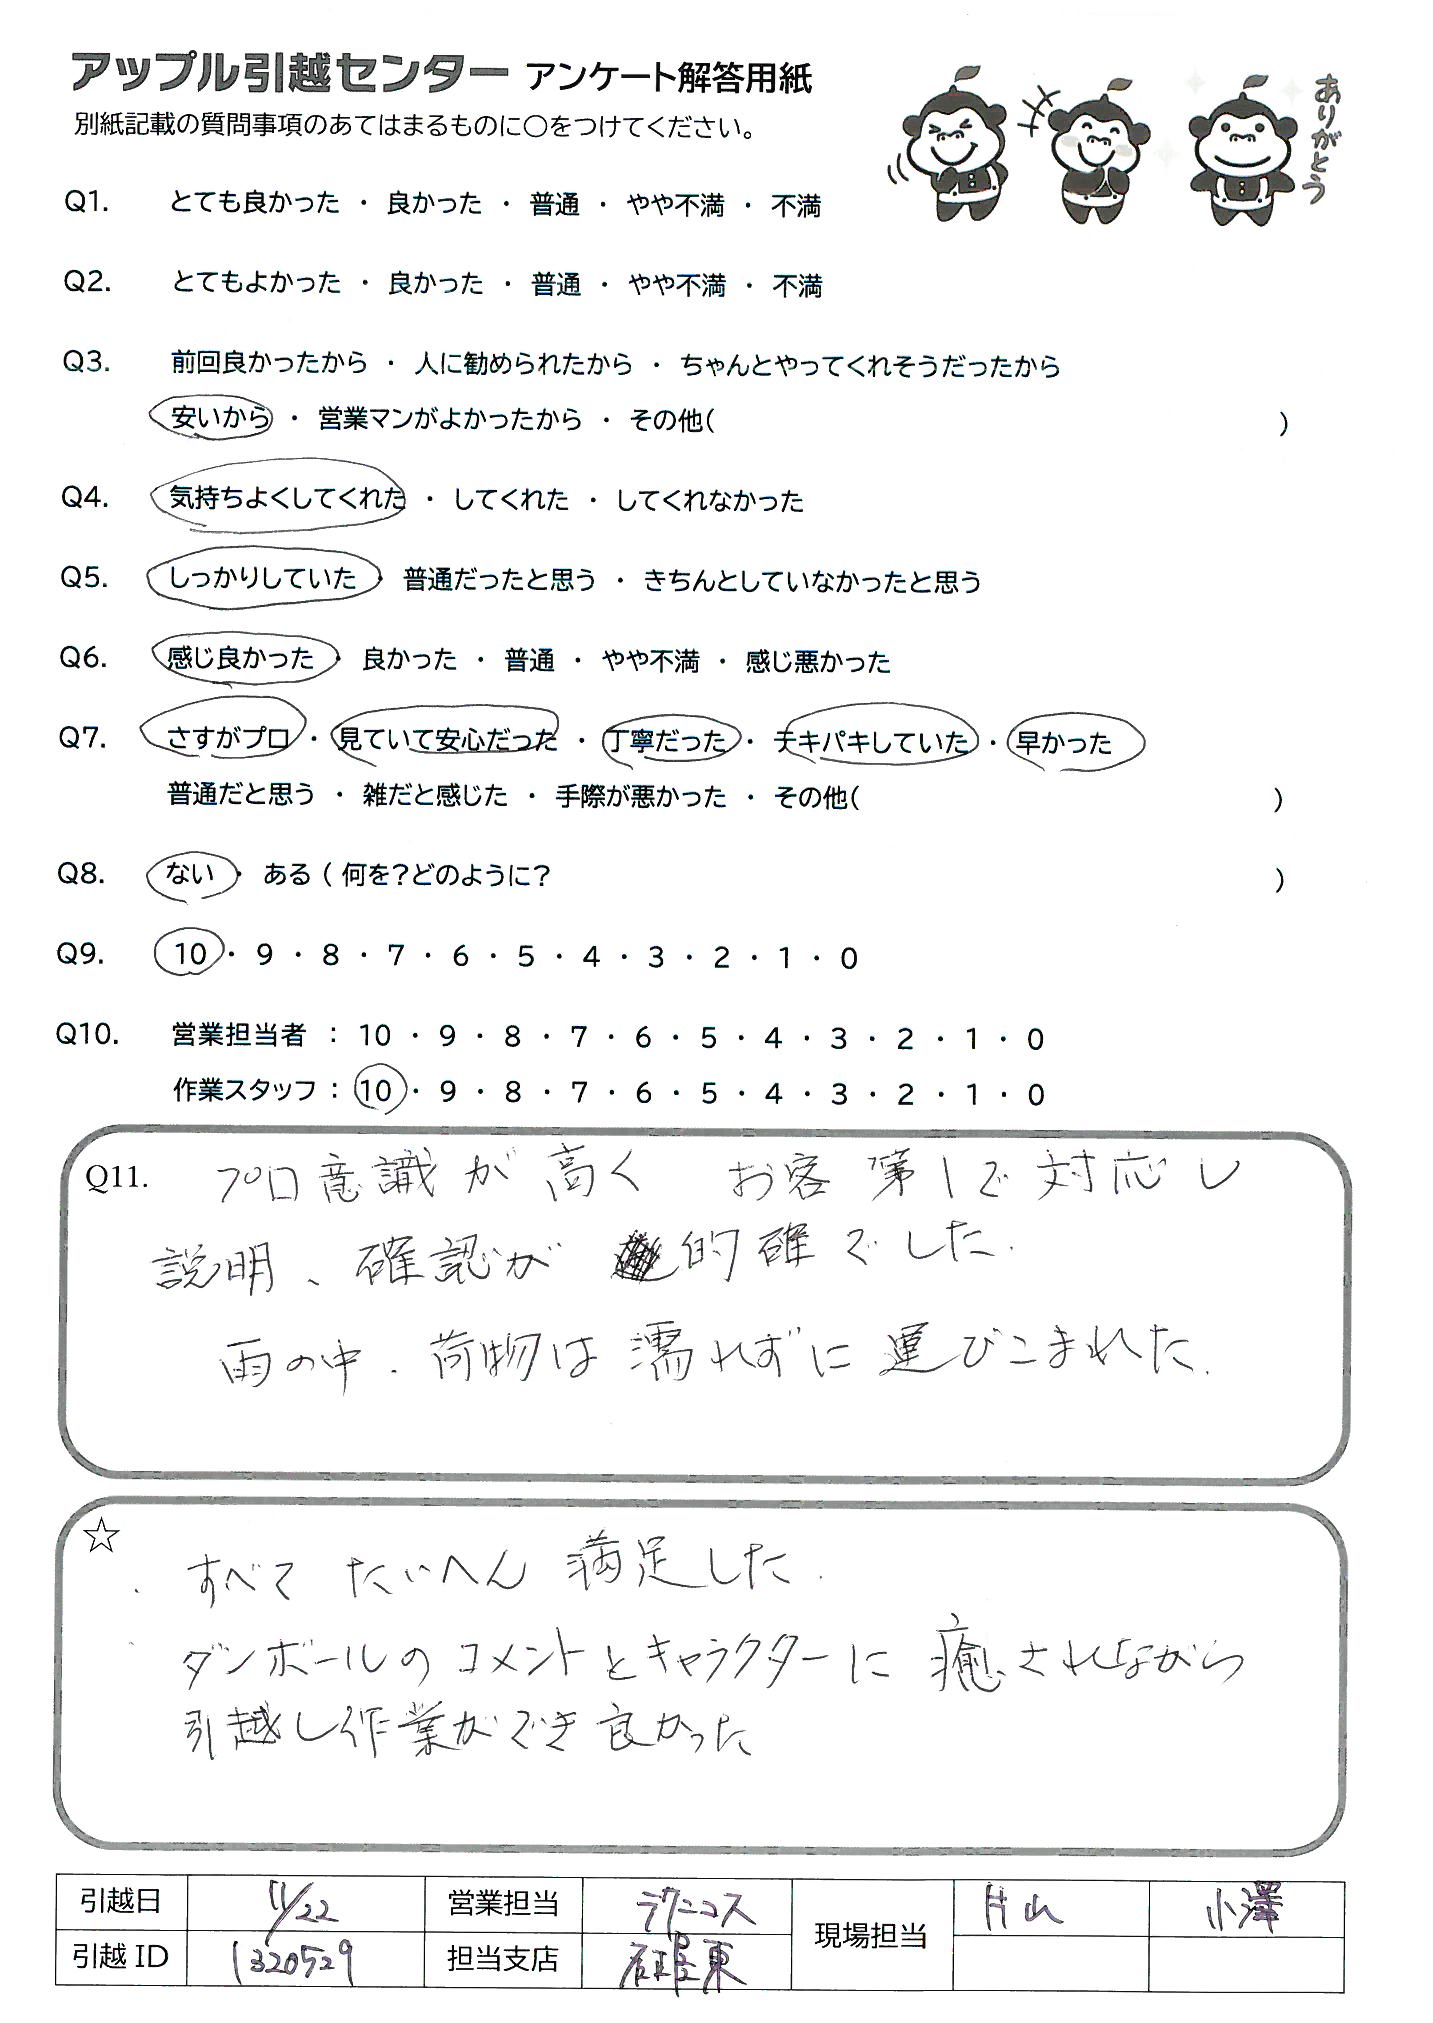 アップル引越センター アンケート解答用紙
別紙記載の質問事項のあてはまるものに○をつけてください。
ありがとう
Q1. とても良かった ・ 良かった ・ 普通 ・ やや不満 ・ 不満
Q2. とてもよかった ・ 良かった ・ 普通 ・ やや不満 ・ 不満
Q3. 前回良かったから ・ 人に勧められたから ・ ちゃんとやってくれそうだったから
安いから ・ 営業マンがよかったから ・ その他( )
Q4. 気持ちよくしてくれた ・ してくれた ・ してくれなかった
Q5. しっかりしていた ・ 普通だったと思う ・ きちんとしていなかったと思う
Q6. 感じ良かった ・ 良かった ・ 普通 ・ やや不満 ・ 感じ悪かった
Q7. さすがプロ ・ 見ていて安心だった ・ 丁寧だった ・ テキパキしていた ・ 早かった
普通だと思う ・ 雑だと感じた ・ 手際が悪かった ・ その他( )
Q8. ない ・ ある ( 何を?どのように? )
Q9. 10 ・ 9 ・ 8 ・ 7 ・ 6 ・ 5 ・ 4 ・ 3 ・ 2 ・ 1 ・ 0
Q10. 営業担当者 : 10 ・ 9 ・ 8 ・ 7 ・ 6 ・ 5 ・ 4 ・ 3 ・ 2 ・ 1 ・ 0
作業スタッフ : 10 ・ 9 ・ 8 ・ 7 ・ 6 ・ 5 ・ 4 ・ 3 ・ 2 ・ 1 ・ 0
Q11. プロ意識が高く お客第1で対応し
説明、確認が 的確でした.
雨の中、荷物は濡れずに運びこまれた.
☆
・ すべて たいへん 満足した.
・ ダンボールのコメントとキャラクターに癒されながら
引越し作業ができ良かった
引越日 11/22 営業担当 テクニコス 現場担当 片山 小澤
引越 ID 1320529 担当支店